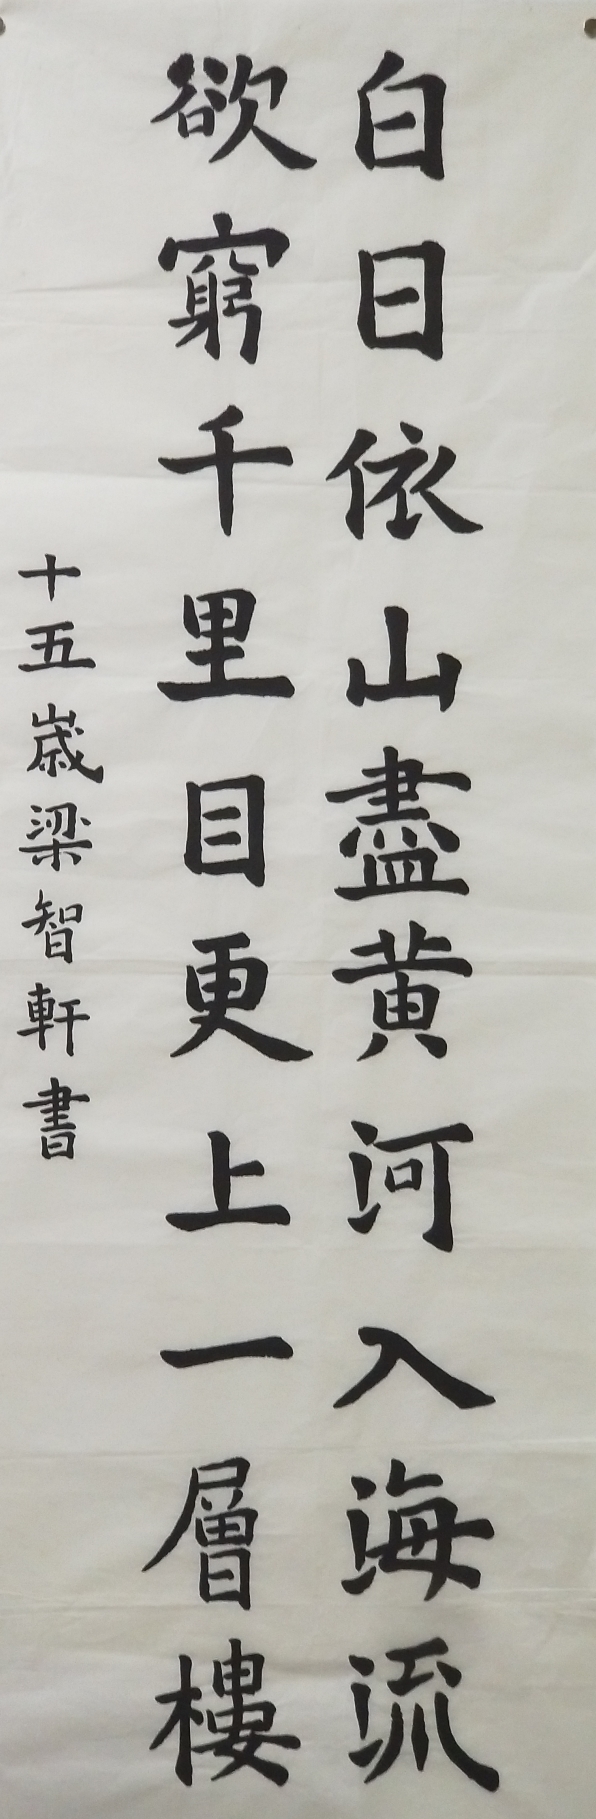 白日依山盡黄河入海流
欲窮千里目更上一層樓
十五歲梁智軒書